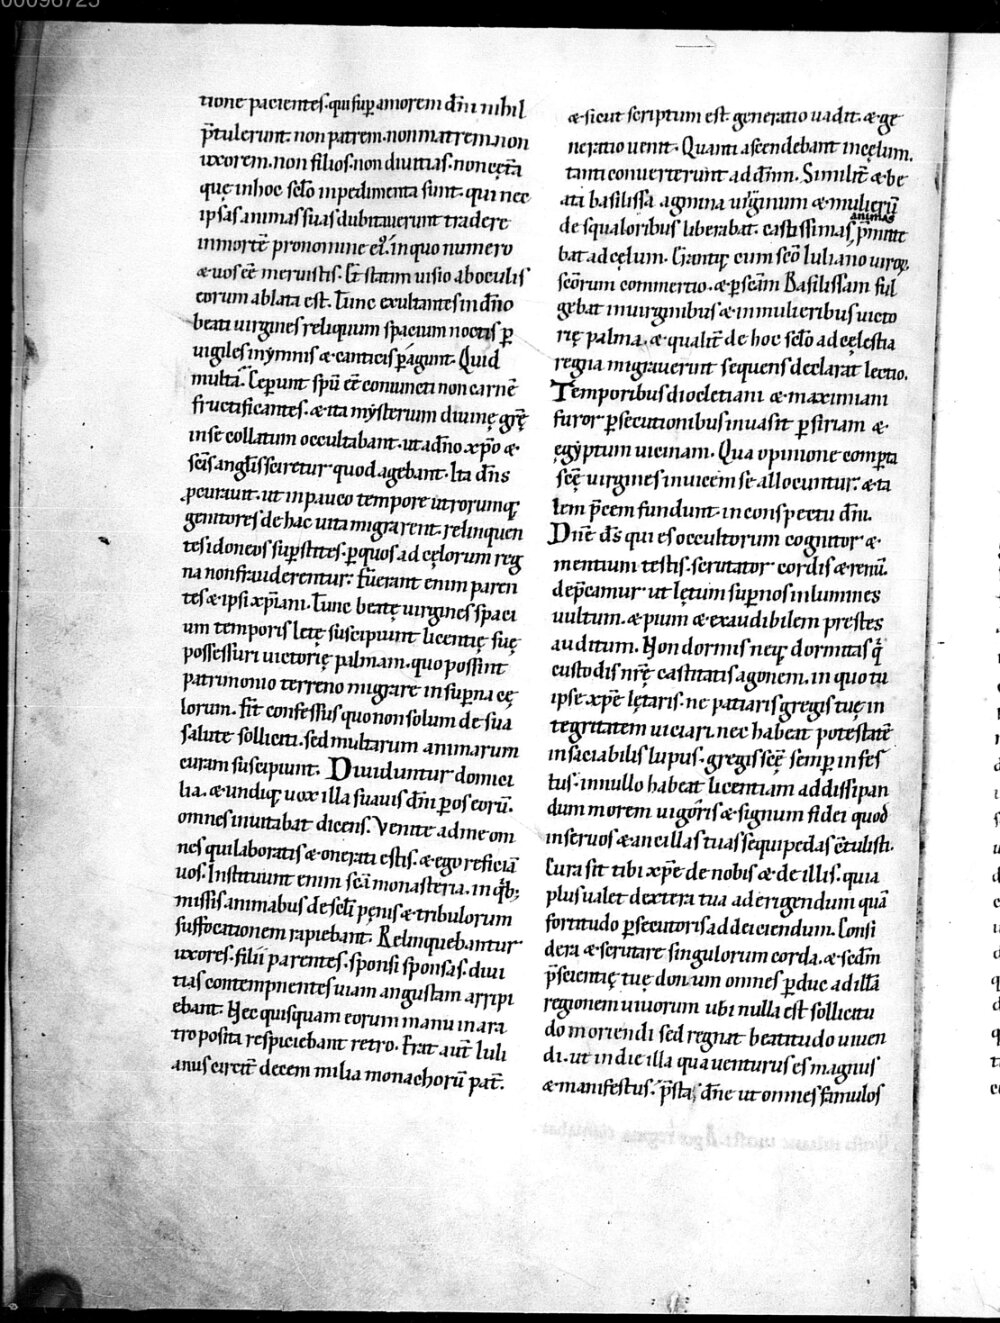 00098725
tione pacientes. qui sup̄ amorem dn̄i nihil
p̄tulerunt. non patrem. non matrem. non
uxorem. non filios. non diuitias. non cęt̄a
quę in hoc sclo inpedimenta sunt. qui nec
ipsas animas suas dubitauerunt tradere
in mortē pro nomine ei᷒. in quo numero
& uos eē meruistis. Et statim uisio ab oculis
eorum ablata est. Tunc exultantes in dn̄o
beati uirgines reliquum spacium noctis p̄
uigiles in ymnis & canticis p̄agunt. Quid
multa. Cep̄unt spū eē coniuncti non carne
fructificantes. & ita mysterium diuinę grę̄
in se collatum occultabant. ut a dn̄o xp̄o &
scīs anglis sciretur quod agebant. Ita dn̄s
ꝓcurauit. ut in pauco tempore utrorumq;
genitores de hac uita migrarent. relinquen
tes idoneos sup̄stites. p̄ quos ad cęlorum reg
na non frauderentur. Fuerant enim paren
tes & ipsi xp̄iani. Tunc beatę uirgines spaci
um temporis lętę suscipiunt licentię suę
possessuri uictorię palmam. quo possint
patrimonio terreno migrare in sup̄na cę
lorum. Fit confessus quo non solum de sua
salute solliciti. sed multarum animarum
curam suscipiunt. Diuiduntur domici
lia. & undiq; uox illa suauis dn̄i p̄ os eorū.
omnes inuitabat dicens. Venite ad me om
nes qui laboratis & onerati estis. & ego reficiā
uos. Instituunt enim scā monasteria. in qib;
missis animabus de scli pęnis & tribulorum
suffocationem rapiebant. Relinquebantur
uxores. filii parentes. sponsi sponsas. diui
tias contempnentes uiam angustam arripi
ebant. Nec quisquam eorum manu in ara
tro posita respiciebant retro. Erat aut̄ Iuli
anus circit̄ decem milia monachorū pat̄.
& sicut scriptum est. generatio uadit. & ge
neratio uenit. Quanti ascendebant in cęlum.
tanti conuerterunt ad dn̄m. Similit̄ & be
ati basilissa agmina uirginum & mulierū
de squaloribus liberabat. castissimas animas p̄mitte
bat ad cęlum. Grantiq; cum scō Iuliano uirogȝ
scōrum commertio. & p̄ scām Basilissam ful
gebat in uirginibus & in mulieribus uicto
rię palma. & qualit̄ de hoc sclo ad cęlestia
regna migrauerunt sequens declarat lectio.
Temporibus diocletiani & maximiani
furor p̄secutionibus inuasit p̄ siriam &
egyptum uicinam. Qua opinione comp̄ta
scę̄ uirgines inuicem se allocuntur. & ta
lem p̄cem fundunt. in conspectu dn̄i.
Dn̄e ds̄ qui es occultorum cognitor &
mentium testis. scrutator cordis & renū.
dep̄camur ut lętum sup̄ nos inlumines
uultum. & pium & exaudibilem prestes
auditum. Non dormis neq; dormitas qi
custodis nrę̄ castitatis agonem. in quo tu
ipse xp̄e lętaris. ne patiaris gregis tuę in
tegritatem uiciari. nec habeat potestatē
insaciabilis lupus. gregis scę̄ semp̄ infes
tus. in nullo habeat licentiam ad dissipan
dum morem uigoris & signum fidei quod
in seruos & ancillas tuas sequipedas c̄tulisti.
Cura sit tibi xp̄e de nobis & de illis. quia
plus ualet dextera tua ad erigendum quā
fortitudo p̄secutoris ad deiciendum. Consi
dera & scrutare singulorum corda. & sedm̄
p̄scientię tuę donum omnes p̄duc ad illā
regionem uiuorum ubi nulla est sollicitu
do moriendi sed regnat beatitudo uiuen
di. ut in die illa qua uenturus es magnus
& manifestus. p̄sta, dn̄e ut omnes famulos